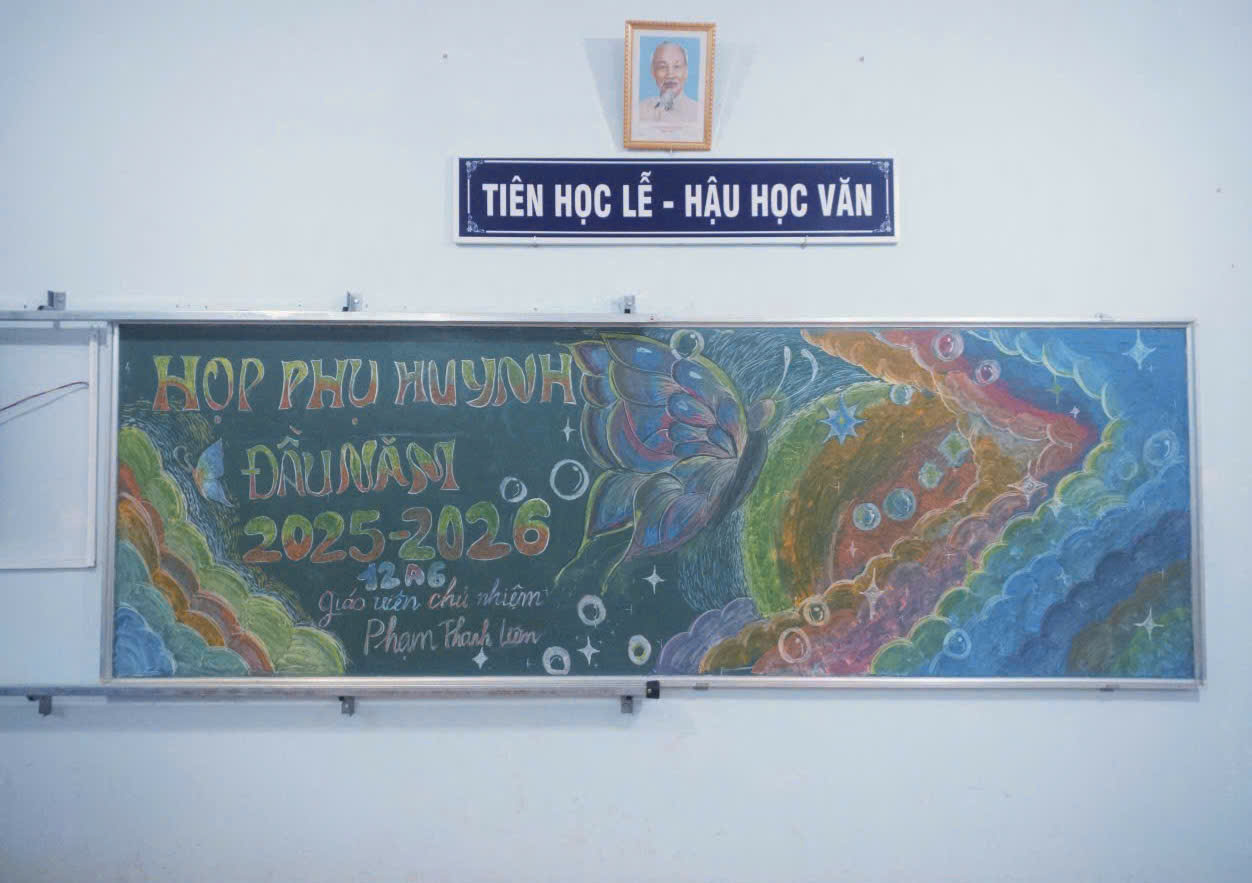 TIÊN HỌC LỄ - HẬU HỌC VĂN
HỌP PHỤ HUYNH
ĐẦU NĂM
2025-2026
12A6
giáo viên chủ nhiệm
Phạm Thanh Liêm